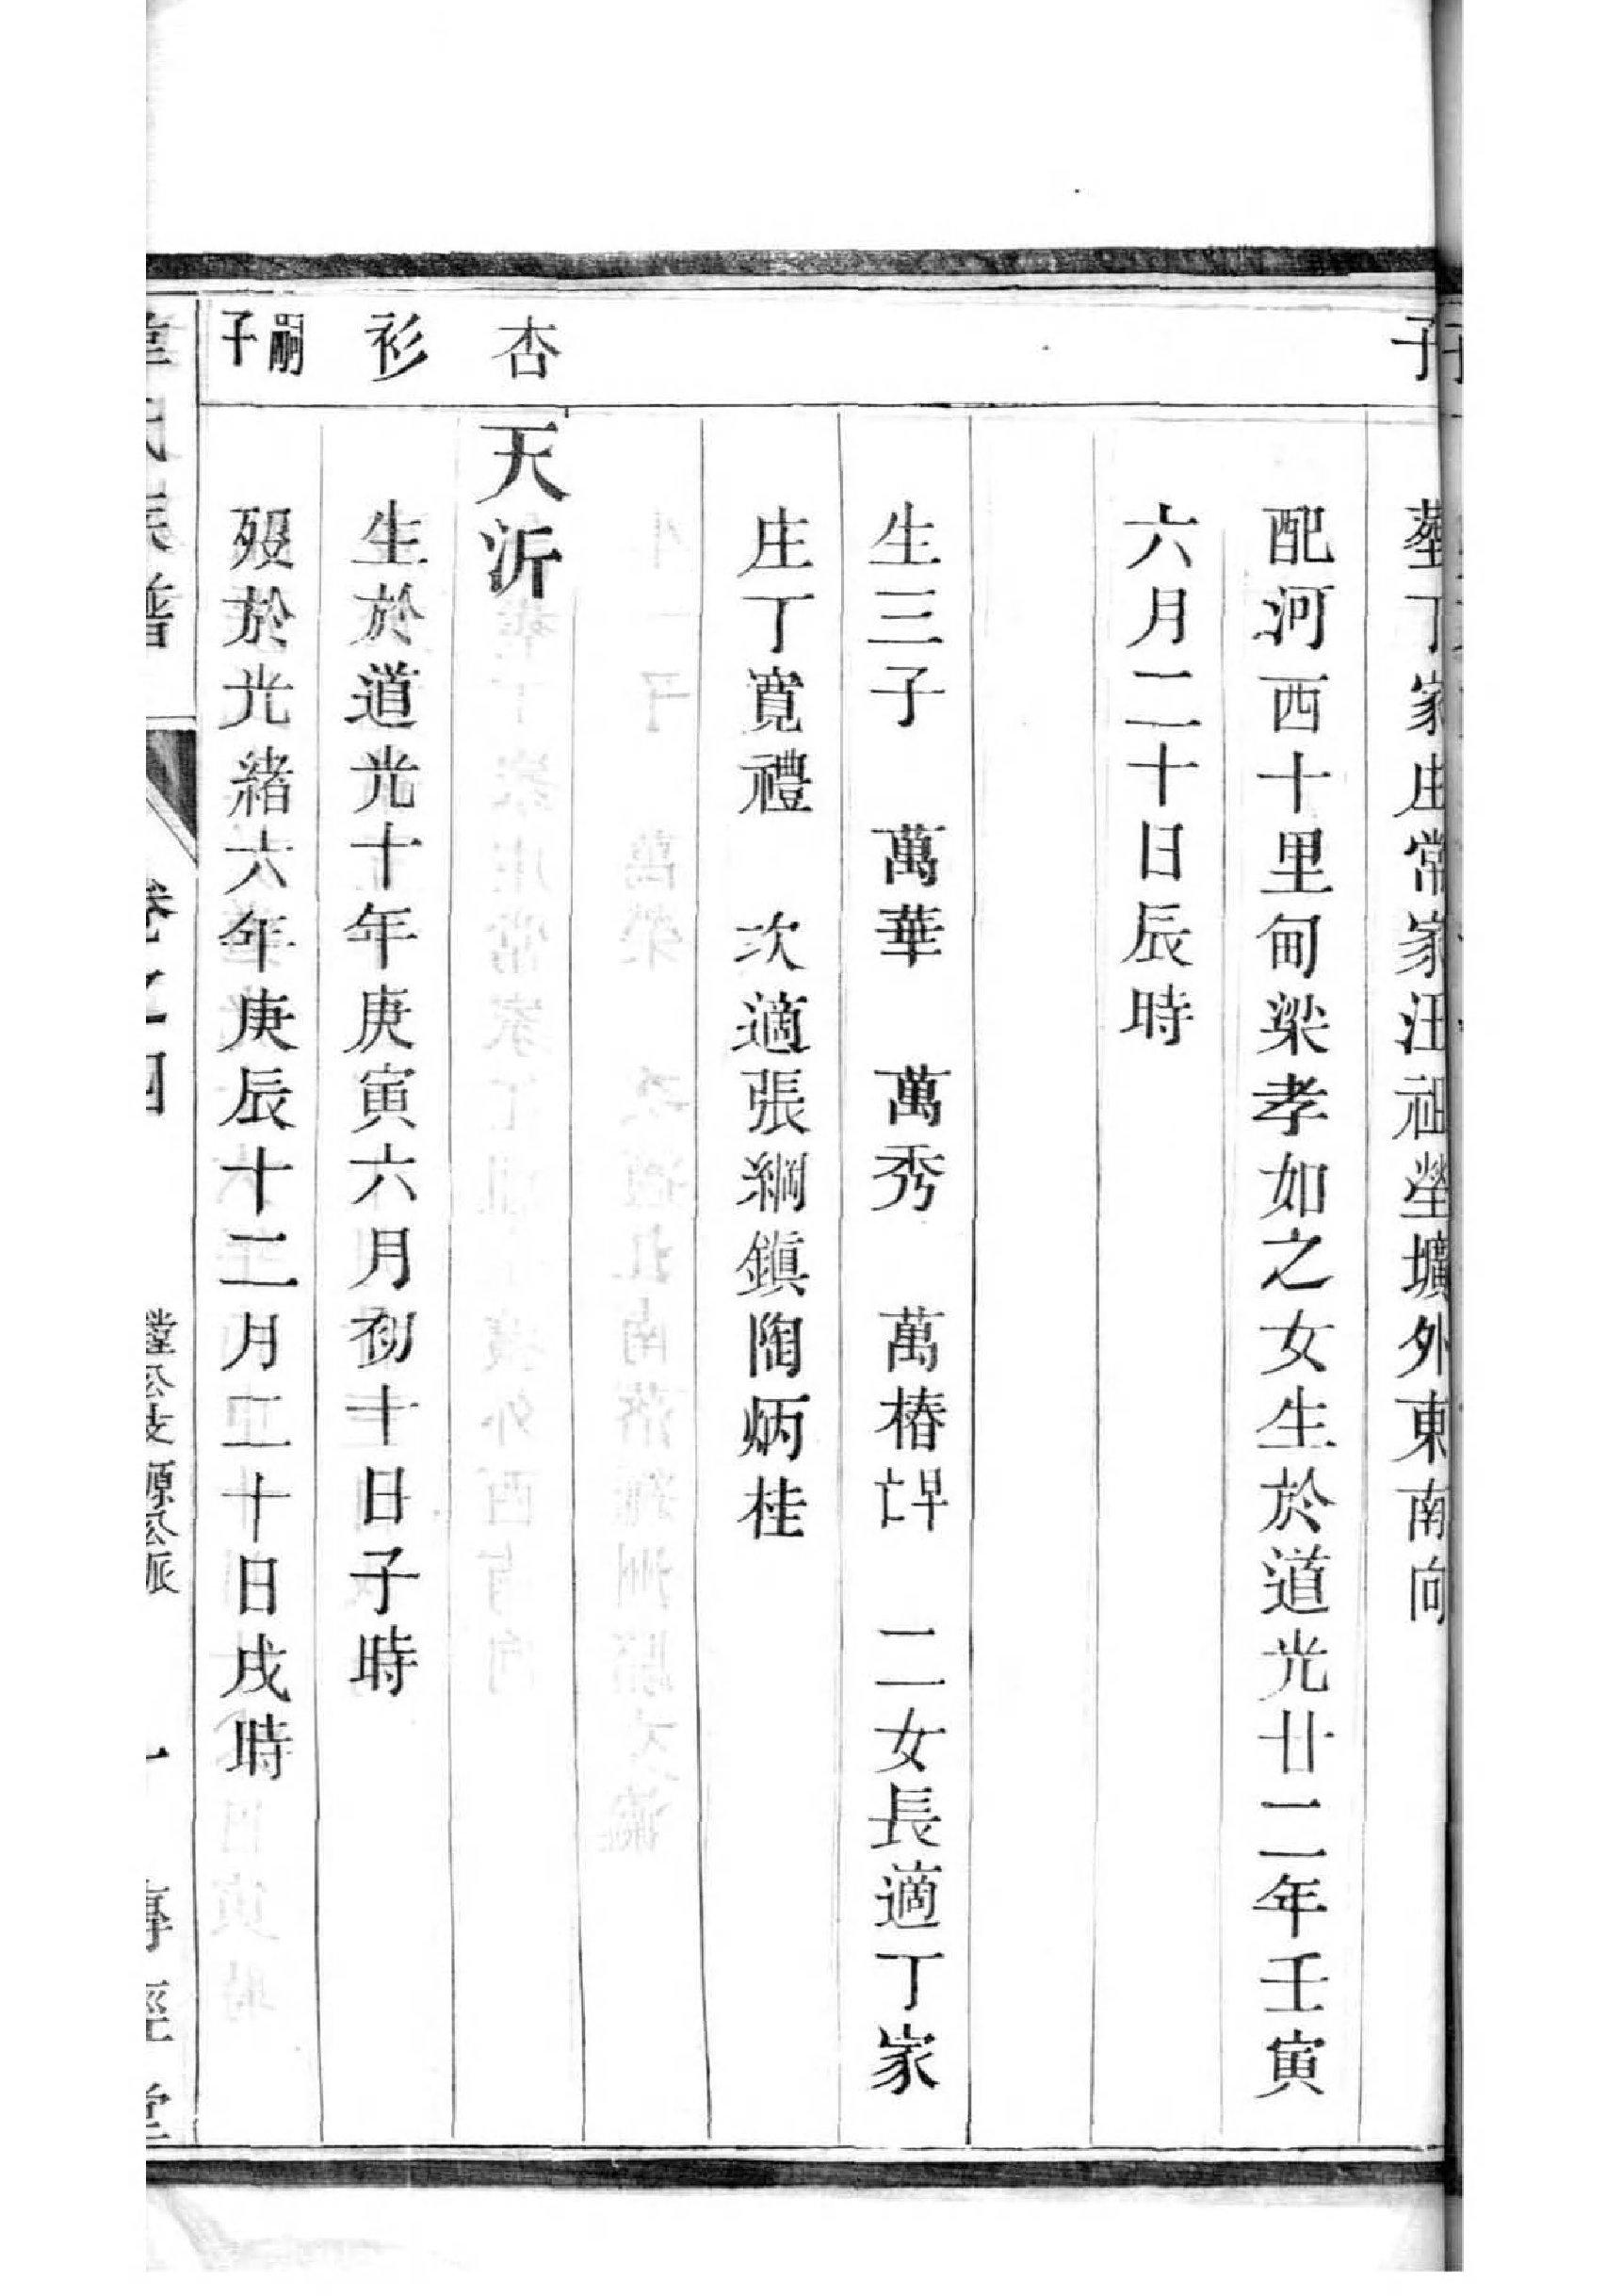 子
葬丁家庄常家汪祖塋壙外東南向
配河西十里甸梁孝如之女生於道光廿二年壬寅
六月二十日辰時
生三子 萬華 萬秀 萬椿早亡 二女長適丁家
庄丁寬禮 次適張綱鎮陶炳桂
杏
天沂
衫
生於道光十年庚寅六月初十日子時
嗣子
歿於光緒六年庚辰十二月二十日戌時
氏族譜 卷之四 公支源公派 十 傳經堂